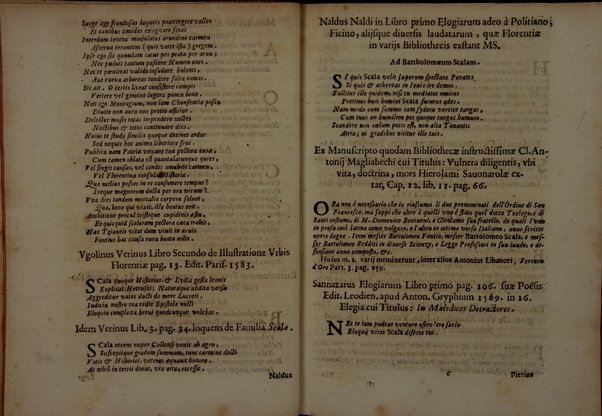 Surge age frondosas laqueis præcingere valles
Et canibus timidas exagitare feras
Interdum tenera modulatus arundine carmen
Asserva errantem (quis vetet ista) gregem.
Ipse ego sic quondam iacui per prato aure;
Nec puduit tantum posse Numen oves.
Nec te pœniteat validis insudare bidente
Aut curua arboreas tondere falce comas.
Sic ait. O licitæ liceat consistere campis
Vertere vel gemino iugera panca boue.
Non ego Montegnum, non iam Consertia posto
Diuite non auro non pratio afficiar.
Delectet mores totas impendere noctes
Noctibus & totos continuere dies.
Huius te studij similis quoque detinet ardor
Sed nequis hoc animo liberiore frui.
Publica nam Patria venxat tua pectora cura,
Cum tamen oblata est quantulacunque quies,
Vel singis causas, vel condis amabile carmen,
Vel Florentina consulis Historia.
Qua melius posses in re consumere tempus?
Ireque magnorum docta per ora virum?
Vna dies tandem mortalia corpora soluet,
Qua, bene qui vixit, ille beatus erit.
Ambitione procul tristique cupidine auri
Et quicquid scelerum pectora cæca trahit.
Hac Teiamus vitat dum viuit in aruis
Fonti bat causas cura beata ostis.
Vgolinus Verinus Libro Secundo de Illustratione Vrbis
Florentiæ pag. 13. Edit. Parif. 1583.
Scala quoque Historias, & Lydia gesta leonis
Explicat: Hetrusci: Naturaque abdita versu
Aggreditur vates docti de more Lucreti.
Iudicio nostro tua cedit Epistola nulli
Eloquio complexa breui quodcunque volebas.
Idem Verinus Lib. 3. pag. 34. loquens de Familia Scalæ.
Scala recens nuper Collensi venit ab agro,
Suscepitque gradum summum, tum carmine docti
Vatis & Historici, veteras aquauit honores
Ac nihil in terris durat, vix orta, recessit,
Naldus
Naldus Naldi in Libro primo Elogiarum adeo à Politiano,
Ficino, alijsque diuersis laudatarum, quæ Florentiæ
in varijs Bibliothecis exstant MS.
Ad Bartholomæum Scalam.
Si quis Scala velit superum spectare Penates,
Si quis & æthereas in louis tre domos.
Fallitur ille quidem, nisi tu modulator amicus
Protinus huic homini Scala futurus ades.
Nam modo cum summo tam sydera vertice tangas,
Cum tuus en humilem pes quoque tangat humum.
Scandere non cælum potis est, non alta Tonantis
Atria; ni gradibus nititur ille tuis.
Ex Manuscripto quodam Bibliothecæ instructissimæ Cl. An-
tonij Magliabechi cui Titulus: Vulnera diligentis, vbi
vita, doctrina, mors Hieronimi Sauonarolæ ex-
tat, Cap. 12. lib. 11. pag. 66.
Ora non è necessario che io riassuma li due prenominati dell'Ordine di San
Francesco, ma sappi che oltre à quelli vno è stato quel dotto Teologo, e di
Santi costumi, di M. Domenico Beniuieni, e Girolamo suo fratello, de quali l'vno
in prosa così latina come volgare, e l'altro in ottimo verso Italiano, anno scritto
opere degne. Item misser Bartolomeo Fontio, messer Bartolomeo Scala, e mes-
ser Bartolomeo Redditi in diuerse Scienze, e Legge Professori in sua laude, e di-
fensione anno composto, &c.
Huius m. s. varij meminerunt, inter alios Antonius Libanori, Ferrara
d'Oro Part. 3. pag. 159.
Sannazarus Elogiarum Libro primo pag. 106. suæ Poësis
Edit. Leodien, apud Anton. Gryphium 1569. in 16.
Elegia cui Titulus: In Maledicos Detractores.
Ne te tam pudeat venturo osten ere sæclo
Eloquij vires Scala diserte tui.
Pierius